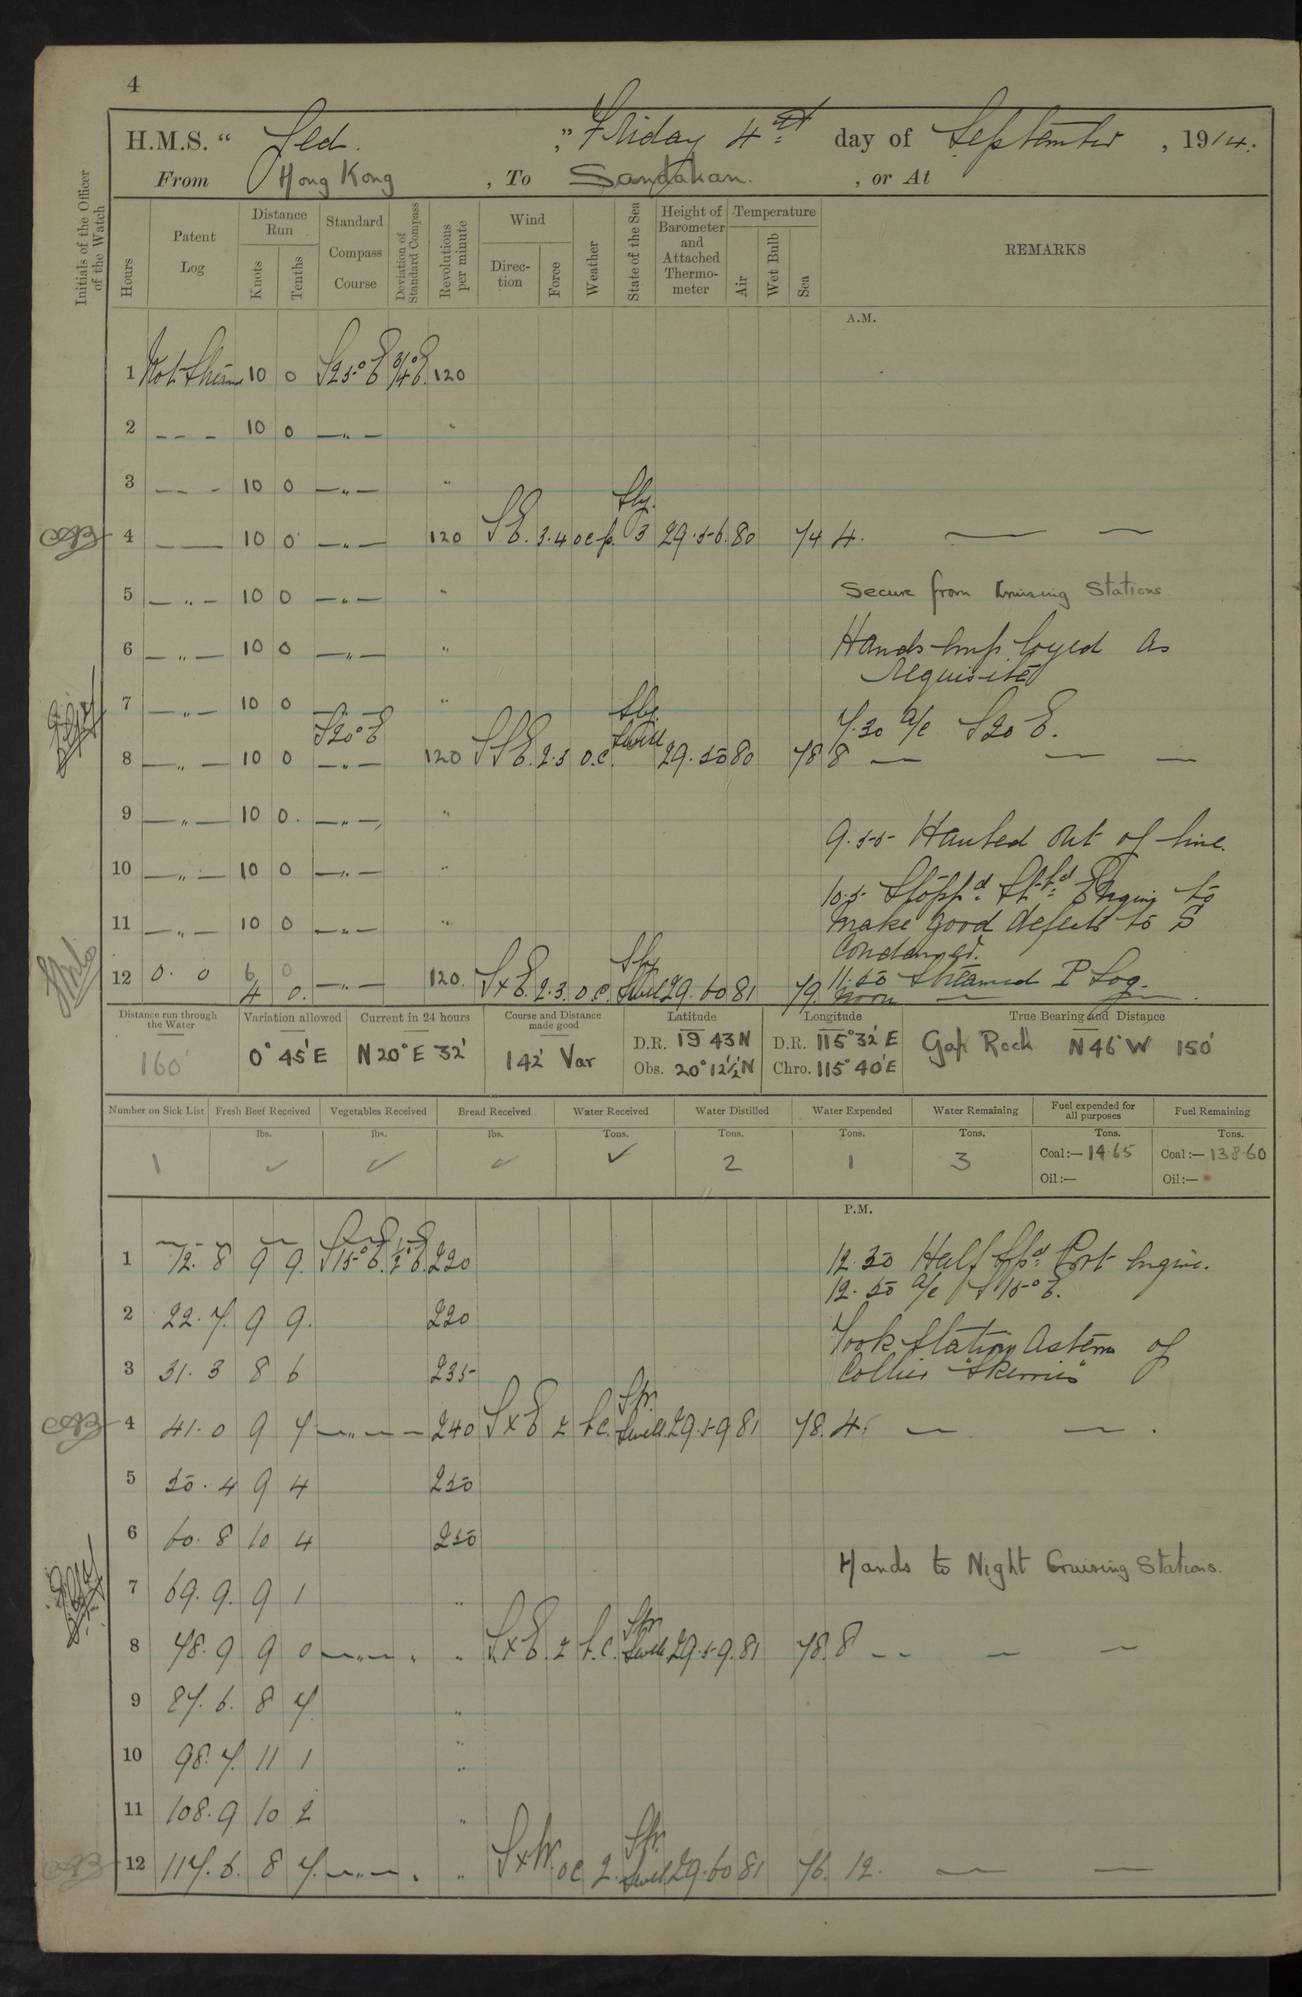 4
H.M.S. " Jed. ", Friday 4th day of September, 1914.
From Hong Kong, To Sandakan., or At
Initials of the Officer of the Watch
Hours
Patent Log
Distance Run
Knots
Tenths
Standard Compass Course
Deviation of Standard Compass
Revolutions per minute
Wind
Direction
Force
Weather
State of the Sea
Height of Barometer and Attached Thermometer
Temperature
Air
Wet Bulb
Sea
REMARKS
A.M.
1 Not Stream 10 0 S25°E 3/4°E. 120
2 — — — 10 0 —"— "
3 — — — 10 0 —"— "
4 — — 10 0 —"— 120 SE. 3.4 oc p. Sly. 3 29.56. 80 74 4. — —
5 —"— 10 0 —"— "
Secure from Cruising Stations
6 —"— 10 0 —"— "
Hands employed as
requisite
7 —"— 10 0 —"— "
7.30 a/c S20E.
8 —"— 10 0 S20°E —"— 120 SSE. 2.3 o.c. Sly. Swell 29.50 80 78 8 — — —
9 —"— 10 0. —"— "
9.55 Hauled out of line.
10 —"— 10 0 —"— "
10.5 Stopp'd Stb'd Engine to
11 —"— 10 0 —"— "
make good defects to S
Condenser.
11.50 Streamed P Log.
12 0. 0 6 0 4 0. —"— 120. SxE. 2.3. o.c. Sly Swell 29.60 81 79. Noon — —
Distance run through the Water
160'
Variation allowed
0° 45' E
Current in 24 hours
N 20° E 32'
Course and Distance made good
142' Var
Latitude
D.R. 19 43 N
Obs. 20° 12½' N
Longitude
D.R. 115° 32' E
Chro. 115° 40' E
True Bearing and Distance
Gap Rock N 46° W 150'
Number on Sick List
1
Fresh Beef Received
lbs.
✓
Vegetables Received
lbs.
✓
Bread Received
lbs.
✓
Water Received
Tons.
✓
Water Distilled
Tons.
2
Water Expended
Tons.
1
Water Remaining
Tons.
3
Fuel expended for all purposes
Tons.
Coal:— 14.65
Oil:—
Fuel Remaining
Tons.
Coal:— 138.60
Oil:—
P.M.
1 12. 8 9 9. S15°E. ½°E. 220
12.30 Half spd. Port Engine.
12.50 a/c S15°E.
2 22.7. 9 9. 220
Took Station Astern of
3 31.3 8 6 235
Collier "Skerries"
4 41.0 9 7 —"— — 240 SxE 2 b.c. Str. Swell. 29.59 81 78. 4. — — .
5 50.4 9 4 250
6 60.8 10 4 250
Hands to Night Cruising Stations.
7 69.9. 9 1 "
8 78.9 9 0 —"—. " SxE. 2 b.c. Str. Swell 29.59. 81 78. 8 — — —
9 87.6. 8 7. "
10 98.7. 11 1 "
11 108.9 10 2 "
12 117.6. 8 7. —"—. " SxW. oc 2. Str. Swell 29.60 81 76. 12. — —